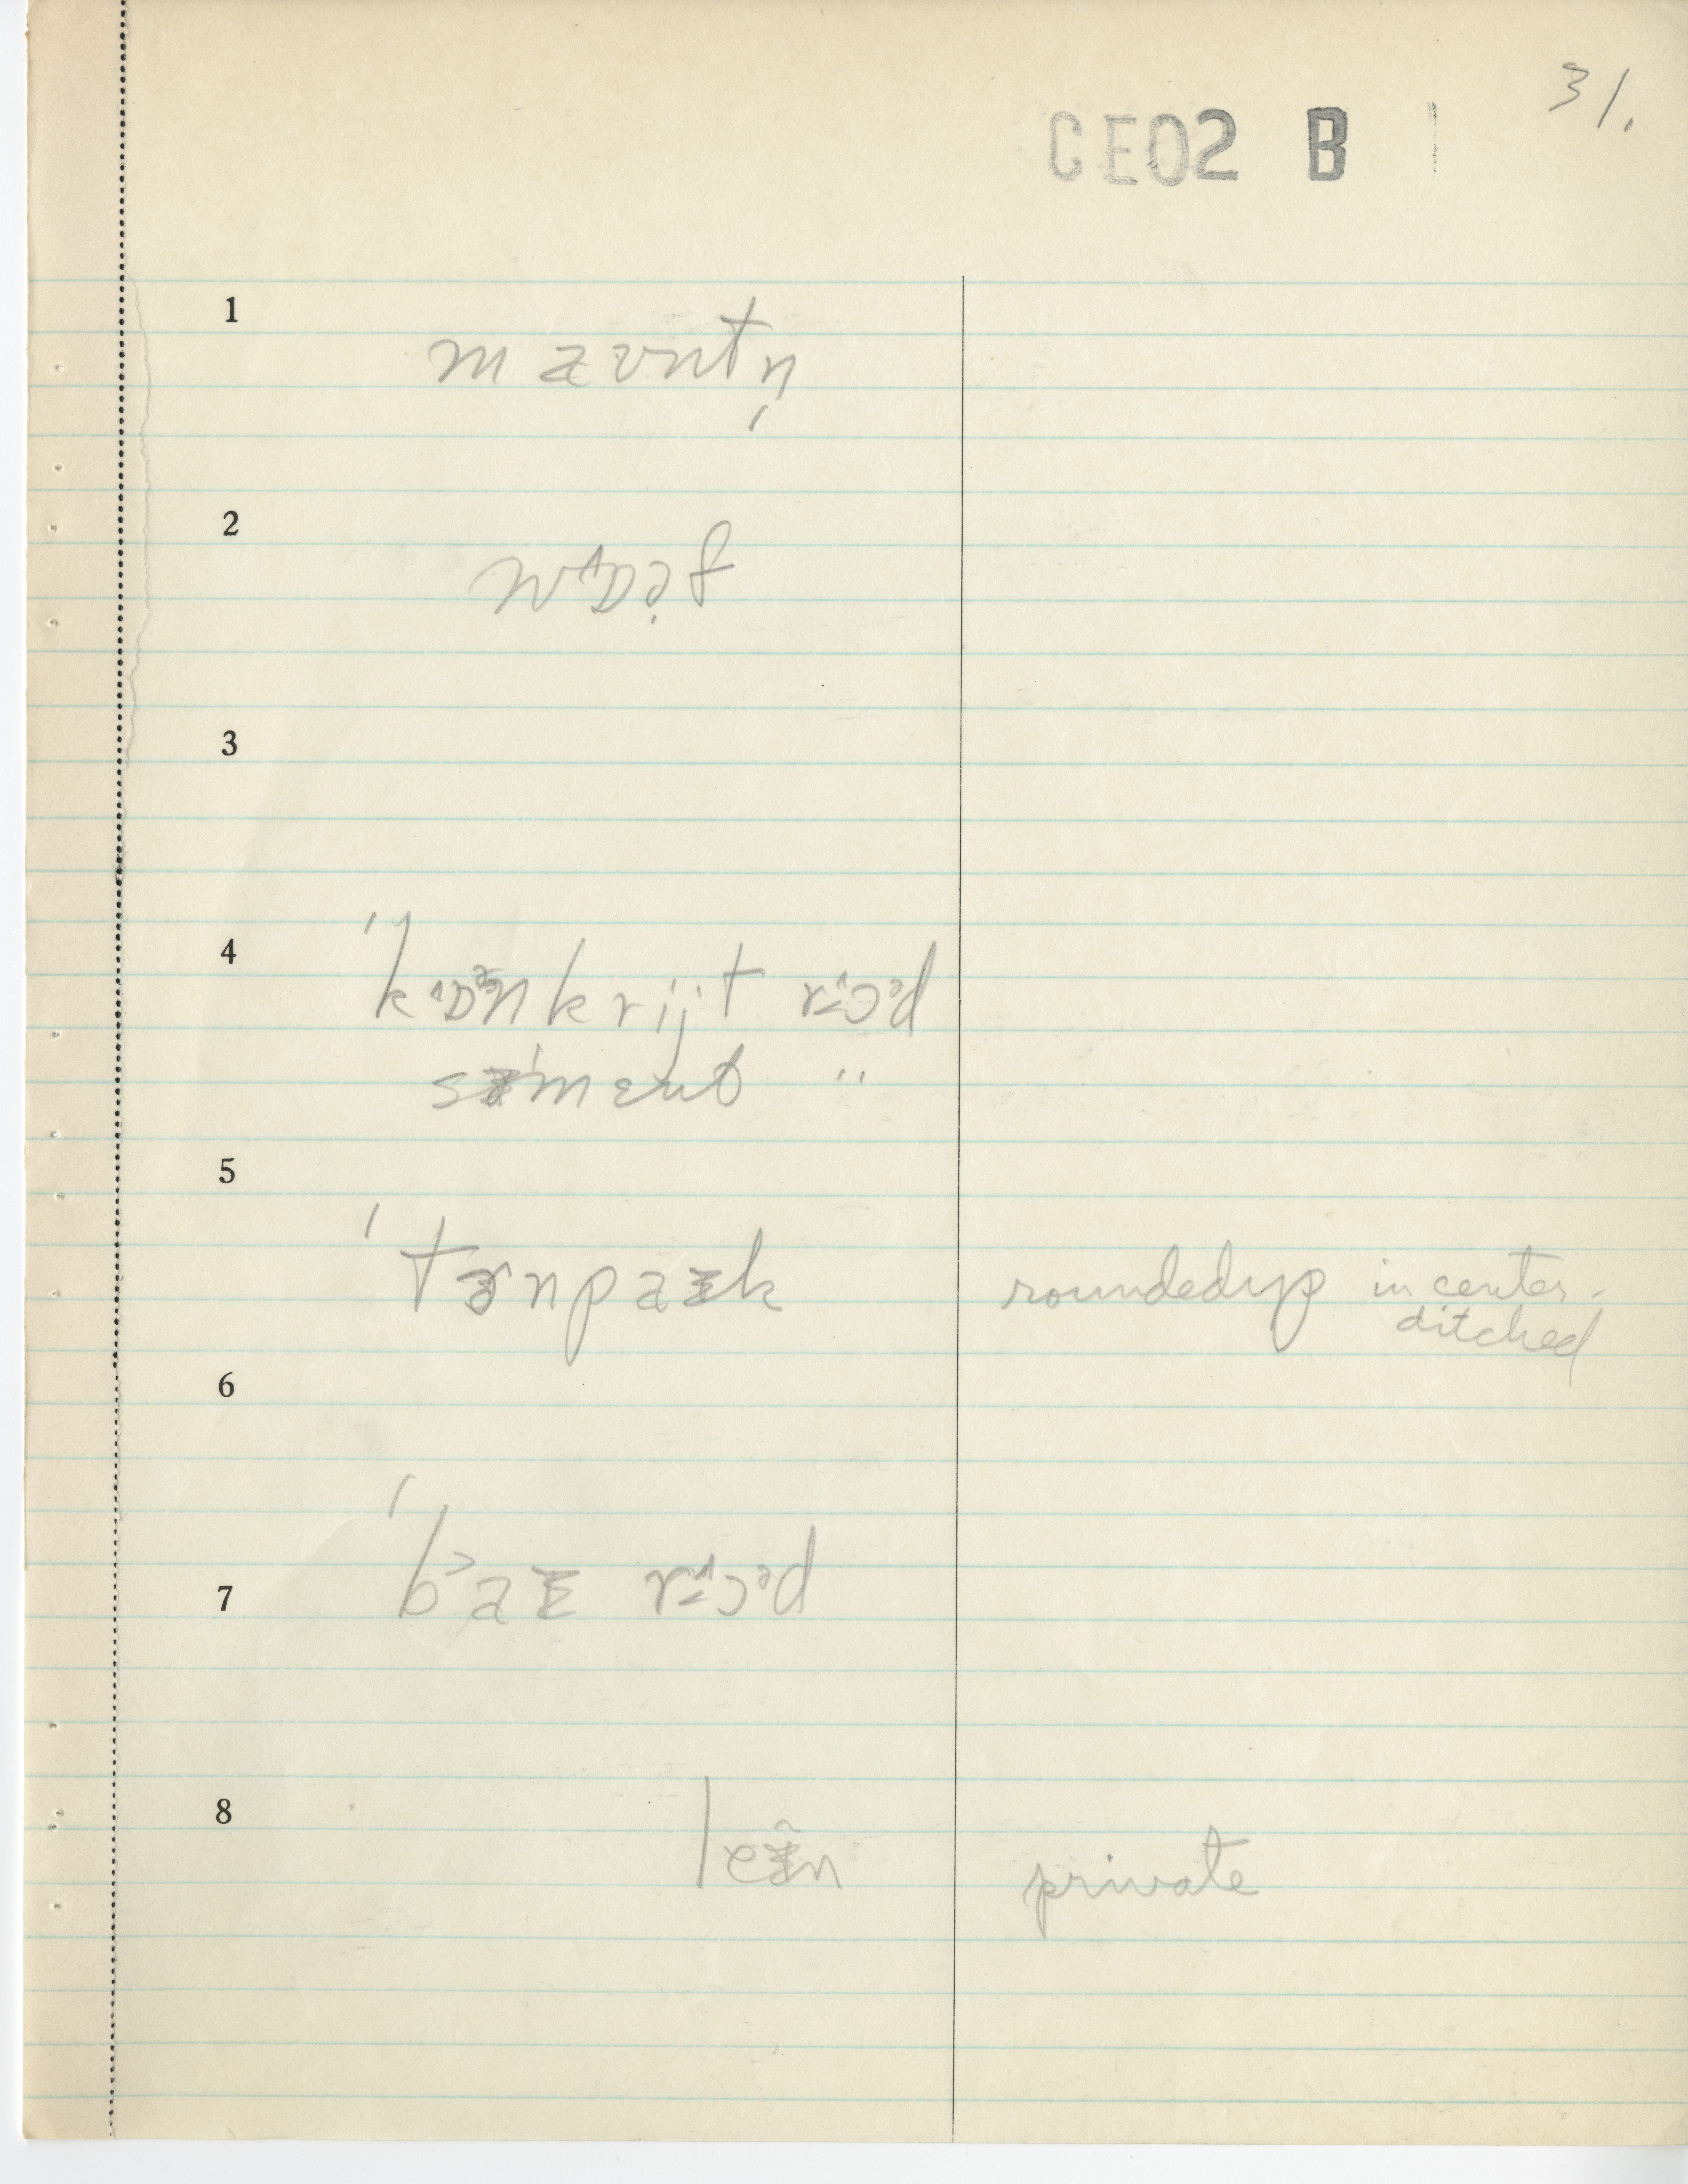 31.
CE02 B |
1
maʊntn̩
2
wɒəf
3
4
ˈkɒnkrijt rɔəd
sɪˈmɛnt "
5
ˈtɜnpaɪk
rounded up in center.
ditched
6
7
ˈbaɪ rɔəd
8
leɪn
private